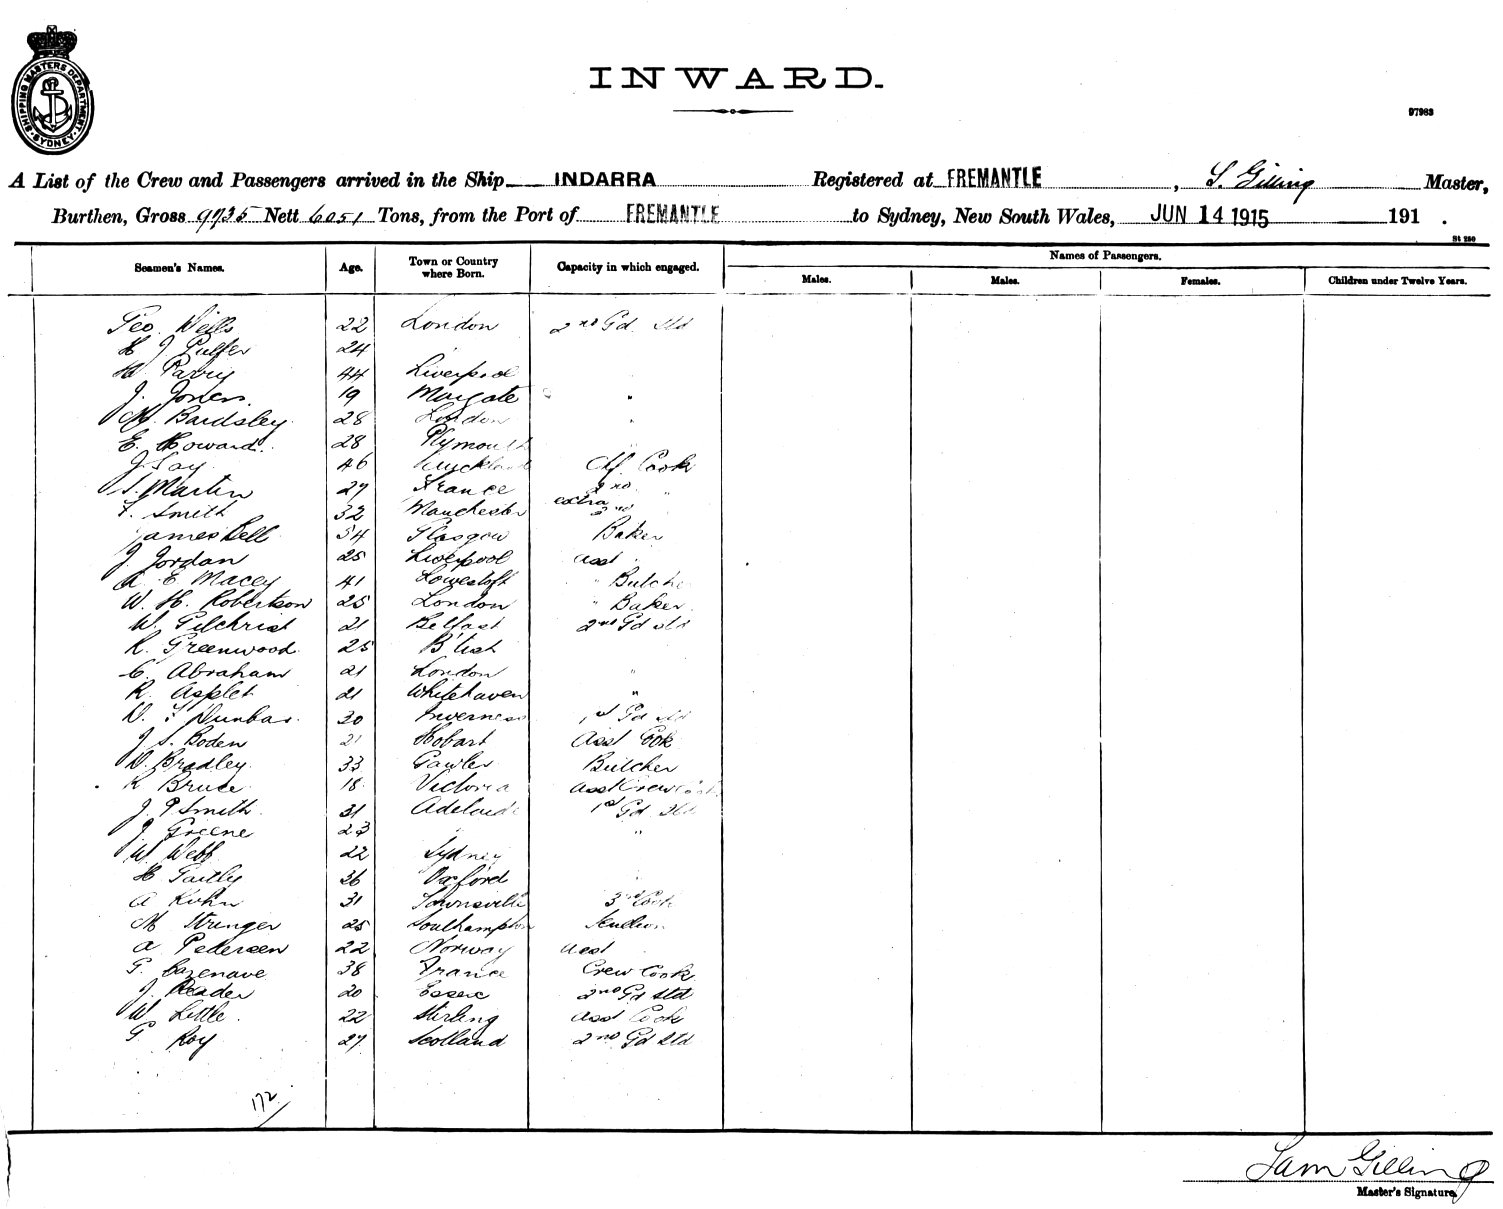 SHIPPING MASTERS DEPARTMENT. SYDNEY.
INWARD.
97963
A List of the Crew and Passengers arrived in the Ship INDARRA Registered at FREMANTLE, S. Gilling Master,
Burthen, Gross 9735 Nett 6051 Tons, from the Port of FREMANTLE to Sydney, New South Wales, JUN 14 1915 191 .
St 280
Seamen's Names. Age. Town or Country where Born. Capacity in which engaged. Names of Passengers.
Males. Males. Females. Children under Twelve Years.
Geo. Wells 22 London 2nd Gd Std
H J Pulfer 24
W Parry 44 Liverpool "
J. Jones. 19 Margate "
M. Bardsley 28 London "
E. Howard. 28 Plymouth "
J. Gay 46 Auckland Chf. Cook
S. Martin 27 France 2nd "
F. Smith 32 Manchester extra 2nd "
James Bell 54 Glasgow Baker
J. Jordan 25 Liverpool asst "
A. E Macey 41 Lowestoft " Butcher
W. H. Robertson 25 London " Baker
W. Gilchrist 21 Belfast 2nd Gd std
R. Greenwood 25 B'
C. Abraham 21 London "
R. Applet 21 Whitehaven "
D. Dunbar. 30 Inverness 1st Gd std
J S. Boden 21 Hobart Asst Cook
D. Bradley. 33 Gawler Butcher
R Bruce. 18 Victoria asst Crew Cook
J. P Smith 31 Adelaide 1st Gd Std
J. Greene 23 " "
W. Webb 22 Sydney
H 36 Oxford "
A Kuhn 31 Townsville 3rd Cook
M Stringer 25 Southampton Scullion
A Pedersen 22 Norway Asst "
G. Cazenave 38 France Crew Cook
J. Reader 20 Essex 2nd Gd Std
W. Little. 22 Stirling asst Cook
G Roy 27 Scotland 2nd Gd Std
172
Sam Gilling
Master's Signature.